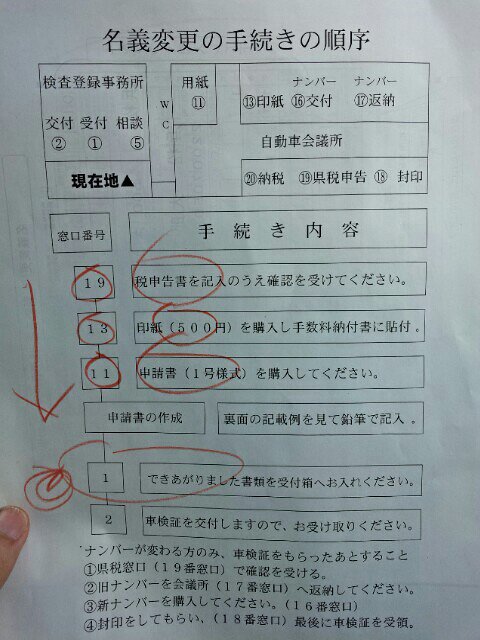 名義変更の手続きの順序
検査登録事務所
交付 受付 相談
② ① ⑤
現在地▲
WC
用紙
⑪
ナンバー ナンバー
⑬印紙 ⑯交付 ⑰返納
自動車会議所
⑳納税 ⑲県税申告 ⑱ 封印
窓口番号 手続き内容
19 税申告書を記入のうえ確認を受けてください。
13 印紙（500円）を購入し手数料納付書に貼付。
11 申請書（1号様式）を購入してください。
申請書の作成 裏面の記載例を見て鉛筆で記入 。
1 できあがりました書類を受付箱へお入れください。
2 車検証を交付しますので、お受け取りください。
ナンバーが変わる方のみ、車検証をもらったあとすること
①県税窓口（19番窓口）で確認を受ける。
②旧ナンバーを会議所（17番窓口）へ返納してください。
③新ナンバーを購入してください。（16番窓口）
④封印をしてもらい、（18番窓口）最後に車検証を受領。